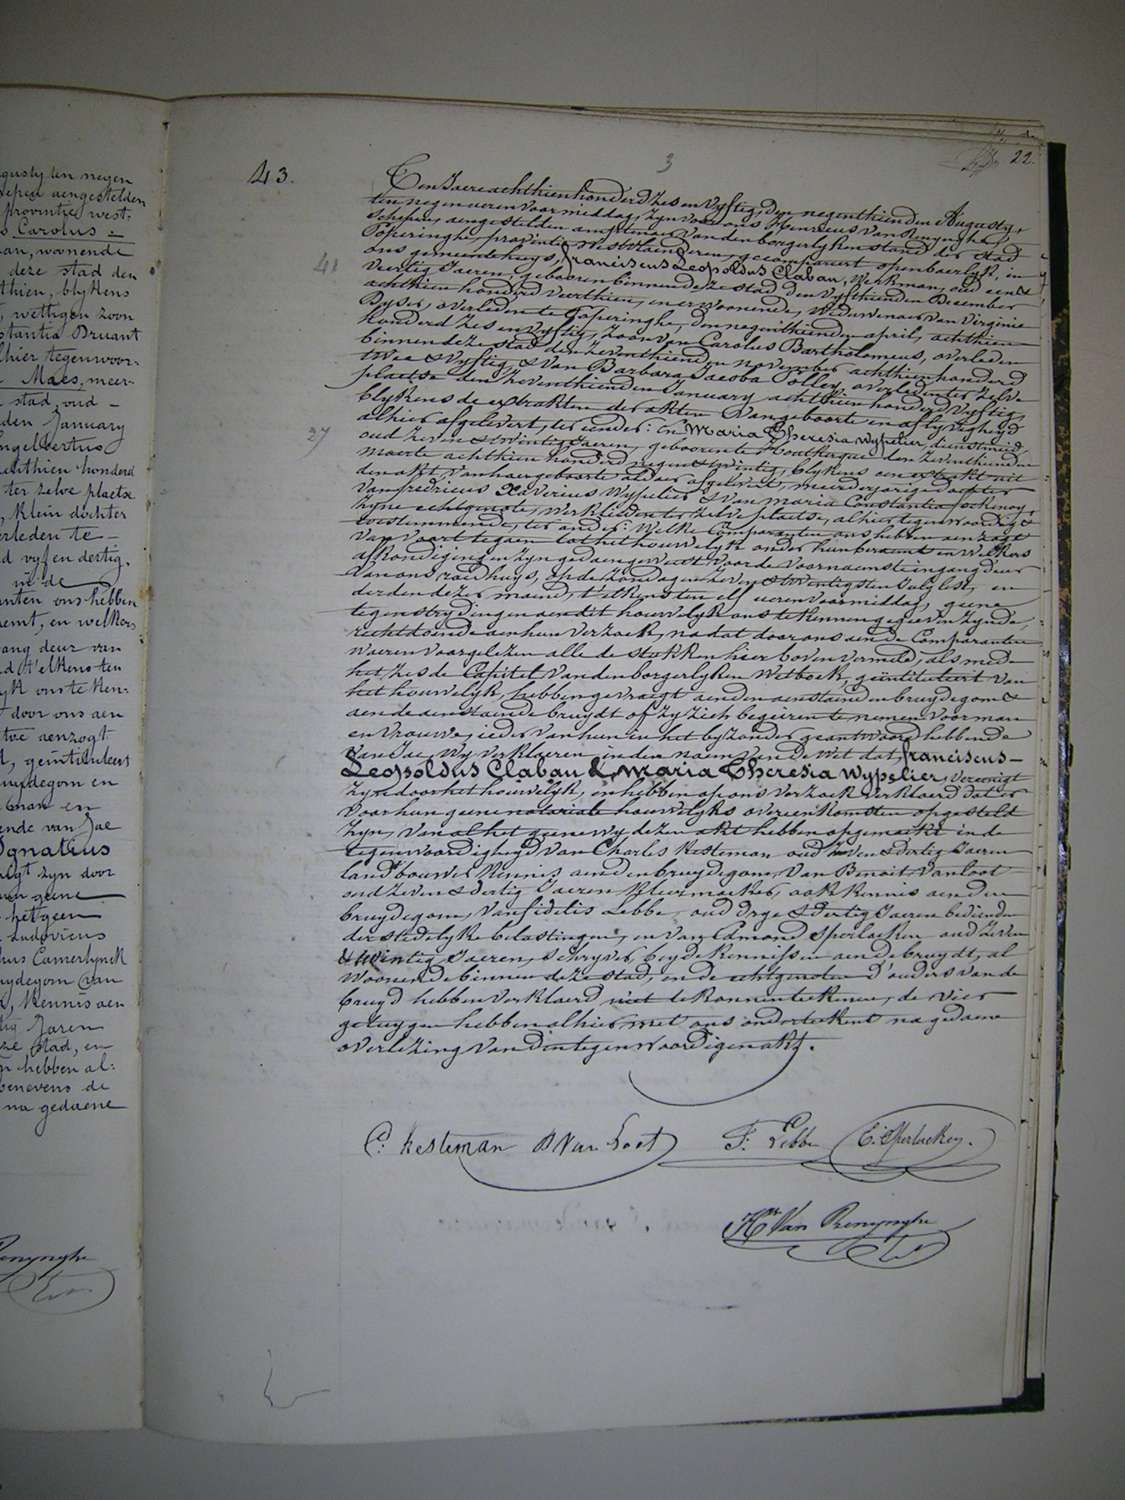 gusty ten negen
schepen aengestelden
provintie west-
s Carolus =
an, woonende
deze stad den
thien, blykens
, wettigen zoon
stantia Druant
lhier tegenwoor-
Maes, meer-
stad, oud
den January
ngelbertus
achthien honderd
ter zelve plaetse
, klein dochter
verleden te
d vyf en dertig,
in de
anten ons hebben
aemt, en welkers
gang deur van
d t'elkens ten
lyk ons te ken-
door ons aen
toe aenzogt
, geintituleert
bruydegom en
man en
ende van Jae
Ignatius
nigt zyn door
geene
het geen
Ludovicus
us Camerlynck
uydegom van
, kennis aen
tig Jaren
ze stad, en
n hebben al:
benevens de
na gedaene
Renynghe
43.
3
22
Ten Jaere achthien honderd zes en vyftig, den negenthienden Augusty,
ten negen ueren voormiddag, zyn voor ons Henricus Van Renynghe,
Schepen, aengestelden amptenaer van den borgerlyken stand der stad
Poperinghe, provintie Westvlaenderen, gecompareert openbaerlyk in
41
ons gemeentehuys, Franciscus Leopoldus Clabau, werkman, oud een &
veertig Jaeren, geboren binnen deze stad den vyfthienden December
achthien honderd veerthien, en er woonende, Weduwenaer van Virginie
Ryser, overleden te Poperinghe, den negenthienden april, achthien
honderd zes en vyftig, zoon van Carolus Bartholomeus, overleden
binnen deze stad den zeventhienden november achthien honderd
twee & vyftig, & van Barbara Jacoba Colley, overleden ter zelve
plaetse den zeventhienden January achthien honderd vyftig,
blykens de extrakten der akten van geboorte en aflyvigheyd
27
alhier afgelevert, ter eender: En Maria Theresia Wypelier, dienstmeid,
oud zeven & twintig Jaeren, geboren te Houtkerque den zeventhienden
maerte achthien honderd negen & twintig, blykens een extrakt uit
den akt van haer geboorte aldaer afgelevert, meerderjarige dochter
van fredricus Xaverius Wypelier & van maria Constantia
zyne echtgenote, werklieden ter zelve plaetse, alhier tegenwoordig &
toestemmende, ter ander: Welke Comparanten ons hebben aenzogt
van voort te gaen tot het houwelyk onder hun beraemt en welkers
afkondigingen zyn gedaen geweest voor de voornaemste ingang deur
van ons raedhuys, op de zondagen zeven & twintigsten July lest, en
derden dezer maend, t'elkens ten elf ueren voormiddag, geene
tegenstrydingen aen dit houwelyk ons te kennen gegeven zynde,
rechtdoende aen hun verzoek, na dat door ons aen de Comparanten
waeren voorgelezen alle de stukken hier boven vermeld, als mede
het zesde Capitel van den borgerlyken Wetboek, geintituleert van
het houwelyk, hebben gevraegt aen den aenstaenden bruydegom &
aen de aenstaende bruydt of zy zich begeiren te nemen voor man
en vrouwe, ieder van hun in het byzonder geantwoord hebbende
van Jae, Wy verklaeren in den naem van de Wet dat Franciscus-
Leopoldus Clabau & Maria Theresia Wypelier vereenigt
zyn door het houwelyk, en hebben op ons verzoek verklaerd dat er
voor hun geene notariale houwelyks overeenkomsten opgesteld
zyn, van al het geene wy dezen akt hebben opgemaekt in de
tegenwoordigheyd van Charles Kesteman oud zeven & dertig Jaeren
landbouwer kennis aen den bruydegom, van Benoit Vanloot
oud zeven & dertig Jaeren kleermaeker, ook kennis aen den
bruydegom, van fidelis Lebbe, oud drye & dertig Jaeren bedienden
der stedelyke belastingen, en van Edmond Sperlaeken oud zeven
& twintig Jaeren, schryver beyde kennissen aen de bruydt, al
woonende binnen deze stad, en de echtgenoten & d'ouders van de
bruyd hebben verklaerd niet te konnen teekenen, de vier
getuygen hebben alhier met ons onderteekent na gedaene
overlezing van den tegenwoordigen akt.
C: Kesteman B Van Loot F: Lebbe E: Sperlaeken.
Hri Van Renynghe